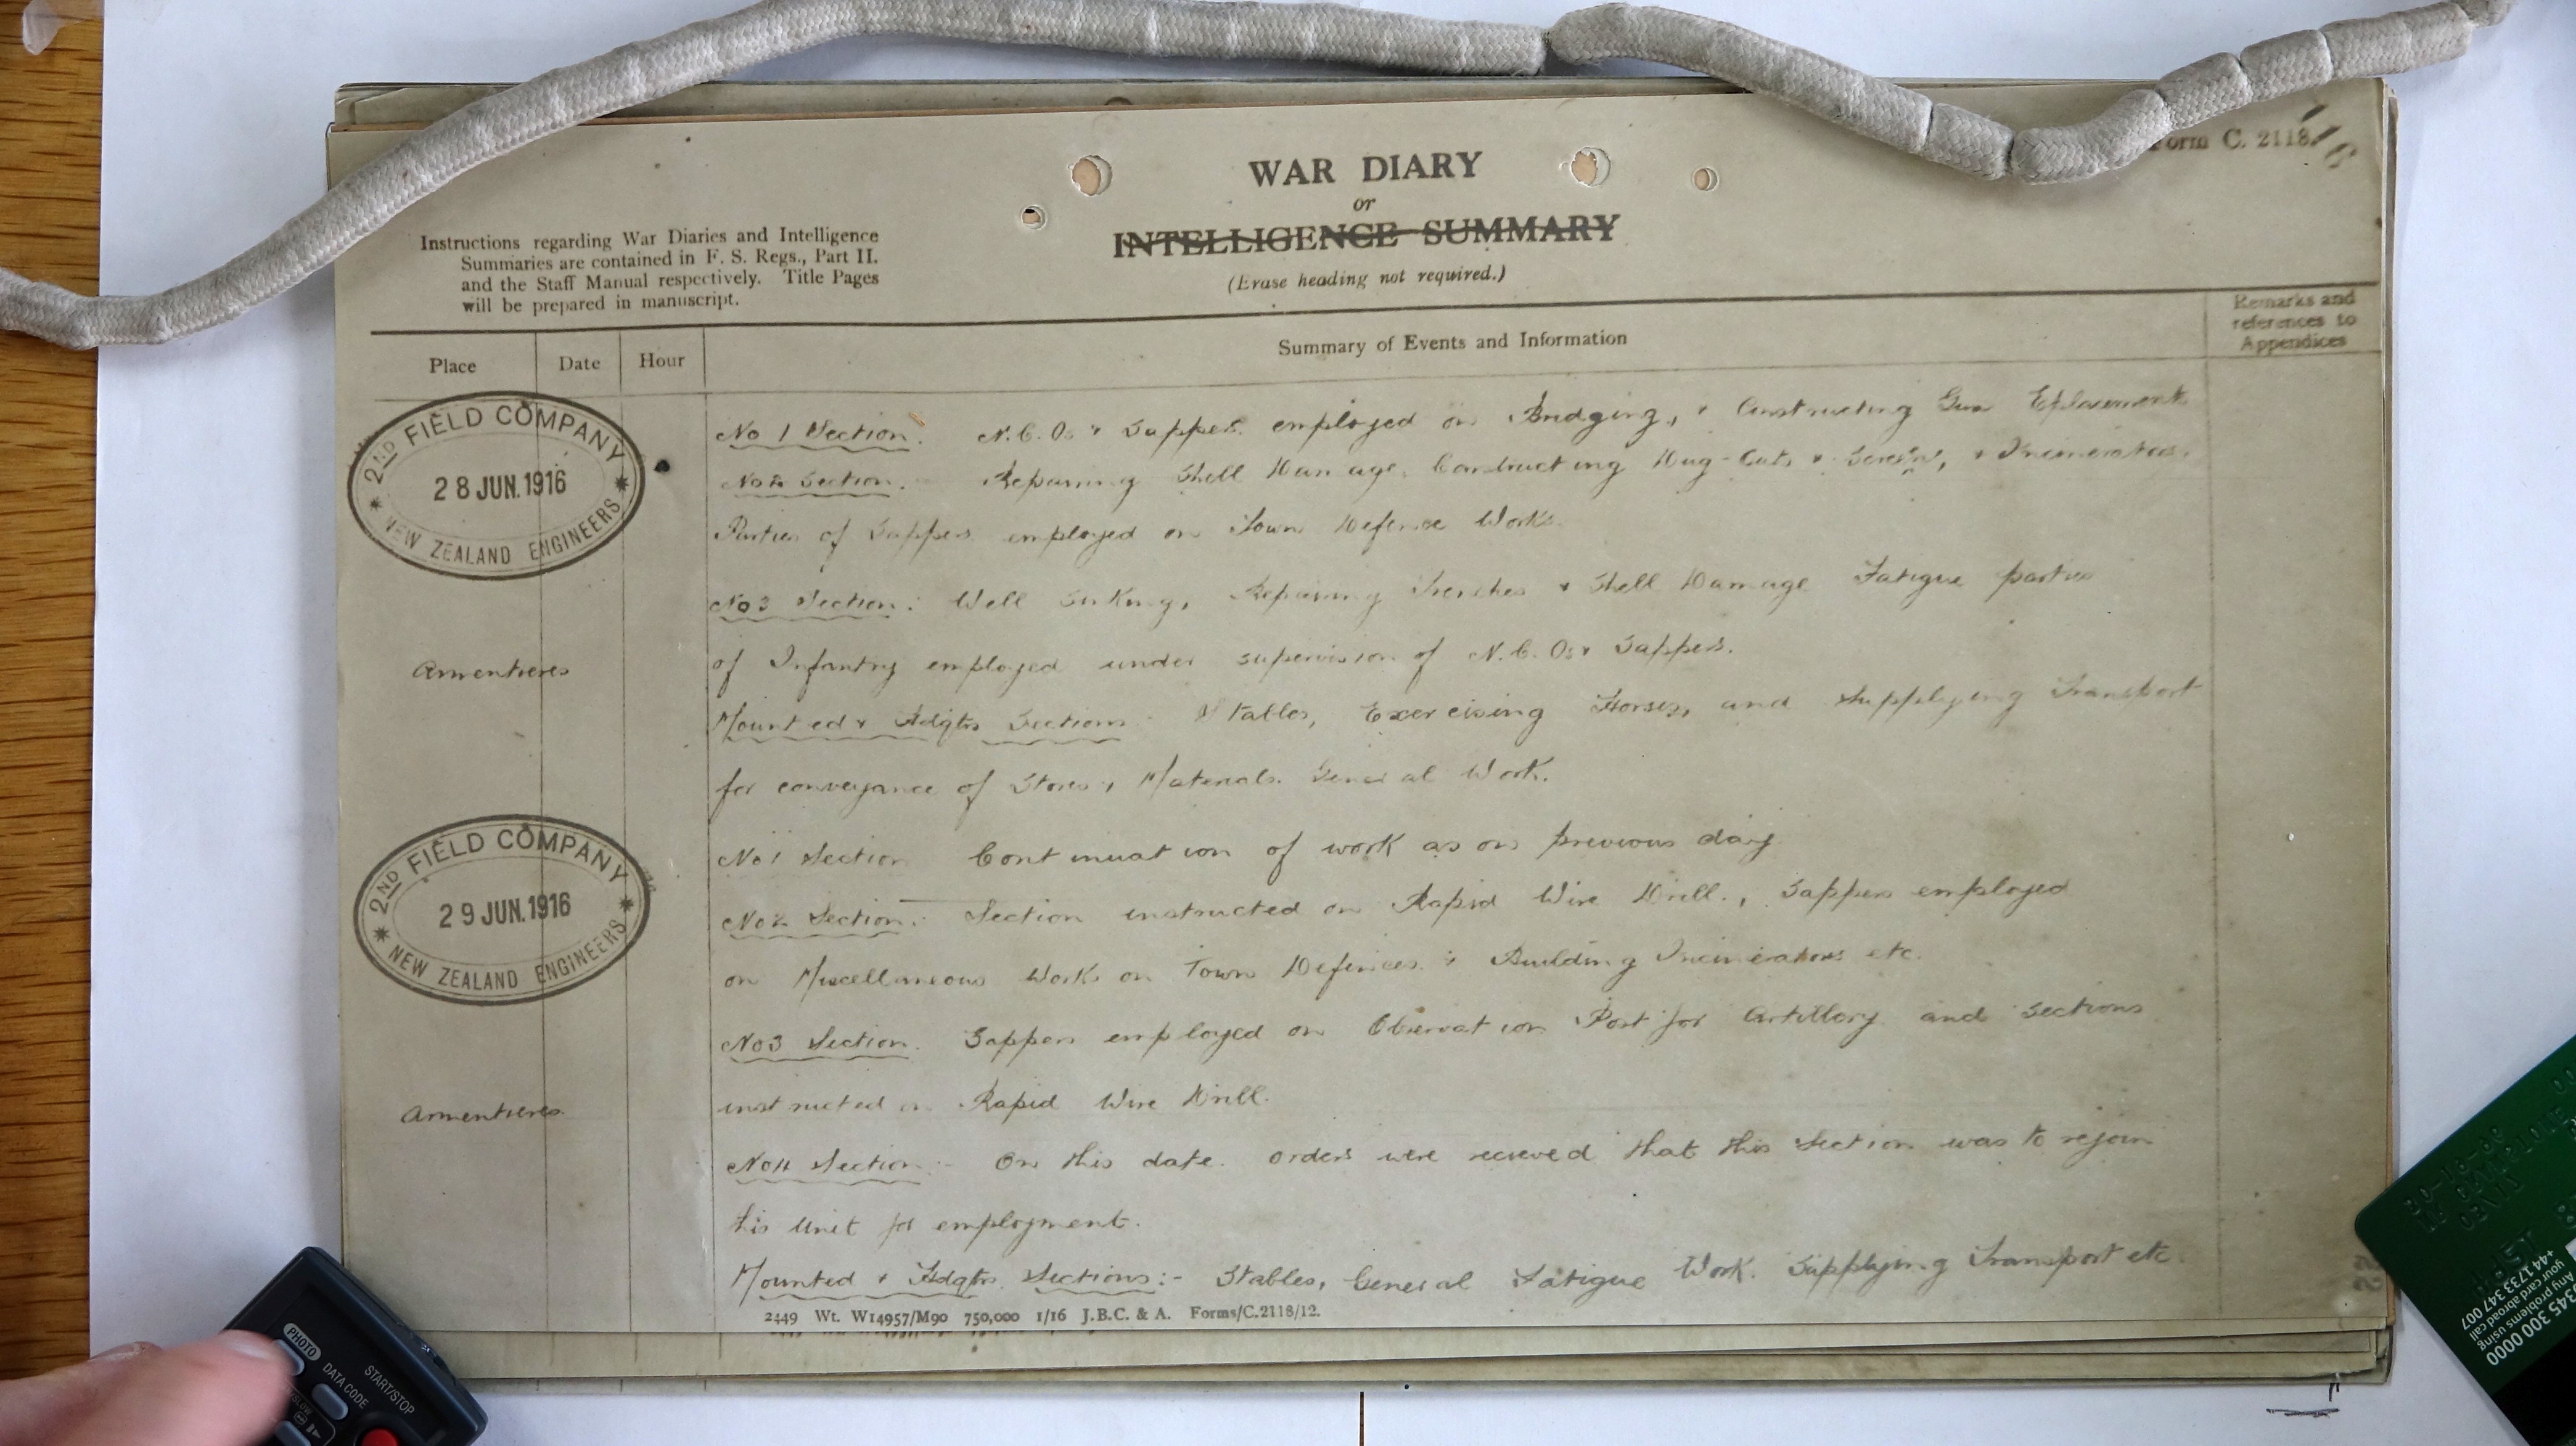 Form C. 2118.
WAR DIARY
or
INTELLIGENCE SUMMARY
(Erase heading not required.)
Instructions regarding War Diaries and Intelligence
Summaries are contained in F. S. Regs., Part II.
and the Staff Manual respectively. Title Pages
will be prepared in manuscript.
Place Date Hour Summary of Events and Information Remarks and references to Appendices
2ND FIELD COMPANY
28 JUN. 1916
NEW ZEALAND ENGINEERS
No 1 Section. N.C.Os & Sappers employed on Bridging, & Constructing Gun Eplacements
No 2 Section. Repairing Shell Damage, Constructing Dug-Outs & & Incinerators.
Parties of Sappers employed on Town Defence Works.
No 3 Section: Well Sinking, Repairing Trenches & Shell Damage Fatigue parties
Armentieres
of Infantry employed under supervision of N.C.Os & Sappers.
Mounted & Hdqtrs Sections Stables, Exercising Horses, and Supplying Transport
for conveyance of Stores & Materials. General Work.
2ND FIELD COMPANY
29 JUN. 1916
NEW ZEALAND ENGINEERS
No 1 Section Continuation of work as on previous day
No 2 Section: Section instructed on Rapid Wire Drill., Sappers employed
on Miscellaneous Works on Town Defences & Building Incinerators etc.
No 3 Section. Sappers employed on Observation Post for Artillery and Sections
Armentieres
instructed on Rapid Wire Drill.
No 4 Section:- On this date. orders were recieved that this Section was to rejoin
his Unit for employment.
Mounted & Hdqtrs. Sections:- Stables, General Fatigue Work. Supplying Transport etc.
2449 Wt. W14957/M90 750,000 1/16 J.B.C. & A. Forms/C.2118/12.
PHOTO
DATA CODE
START/STOP
SLOW
345 300 0000
any problems using
your card abroad call
+44 1733 347 007